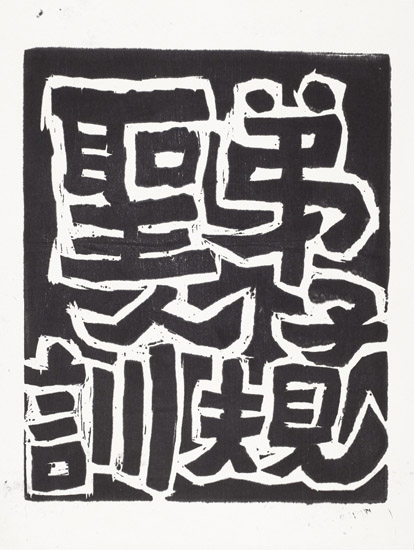 弟子規
聖人訓